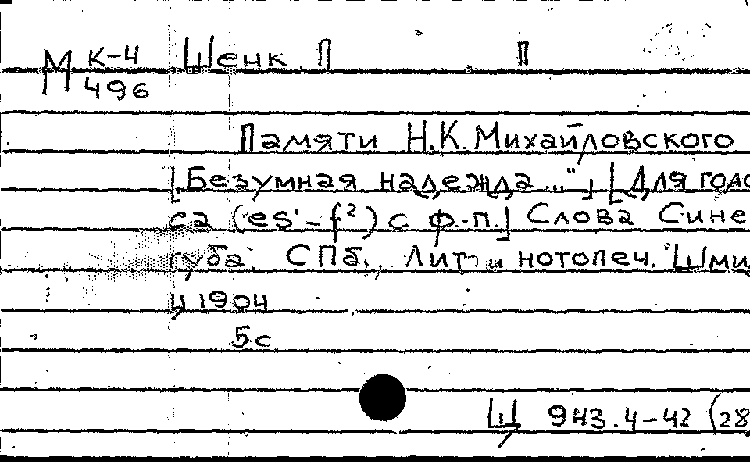 М К-4 Шенк П П
496
Памяти Н.К.Михайловского
[„Безумная надежда..."] [Для голо
са (es'-f²) с ф-п.] Слова Сине
губа. СПб. Лит. и нотопеч. Шми
, 1904
5с
Щ 943.4-42 (28